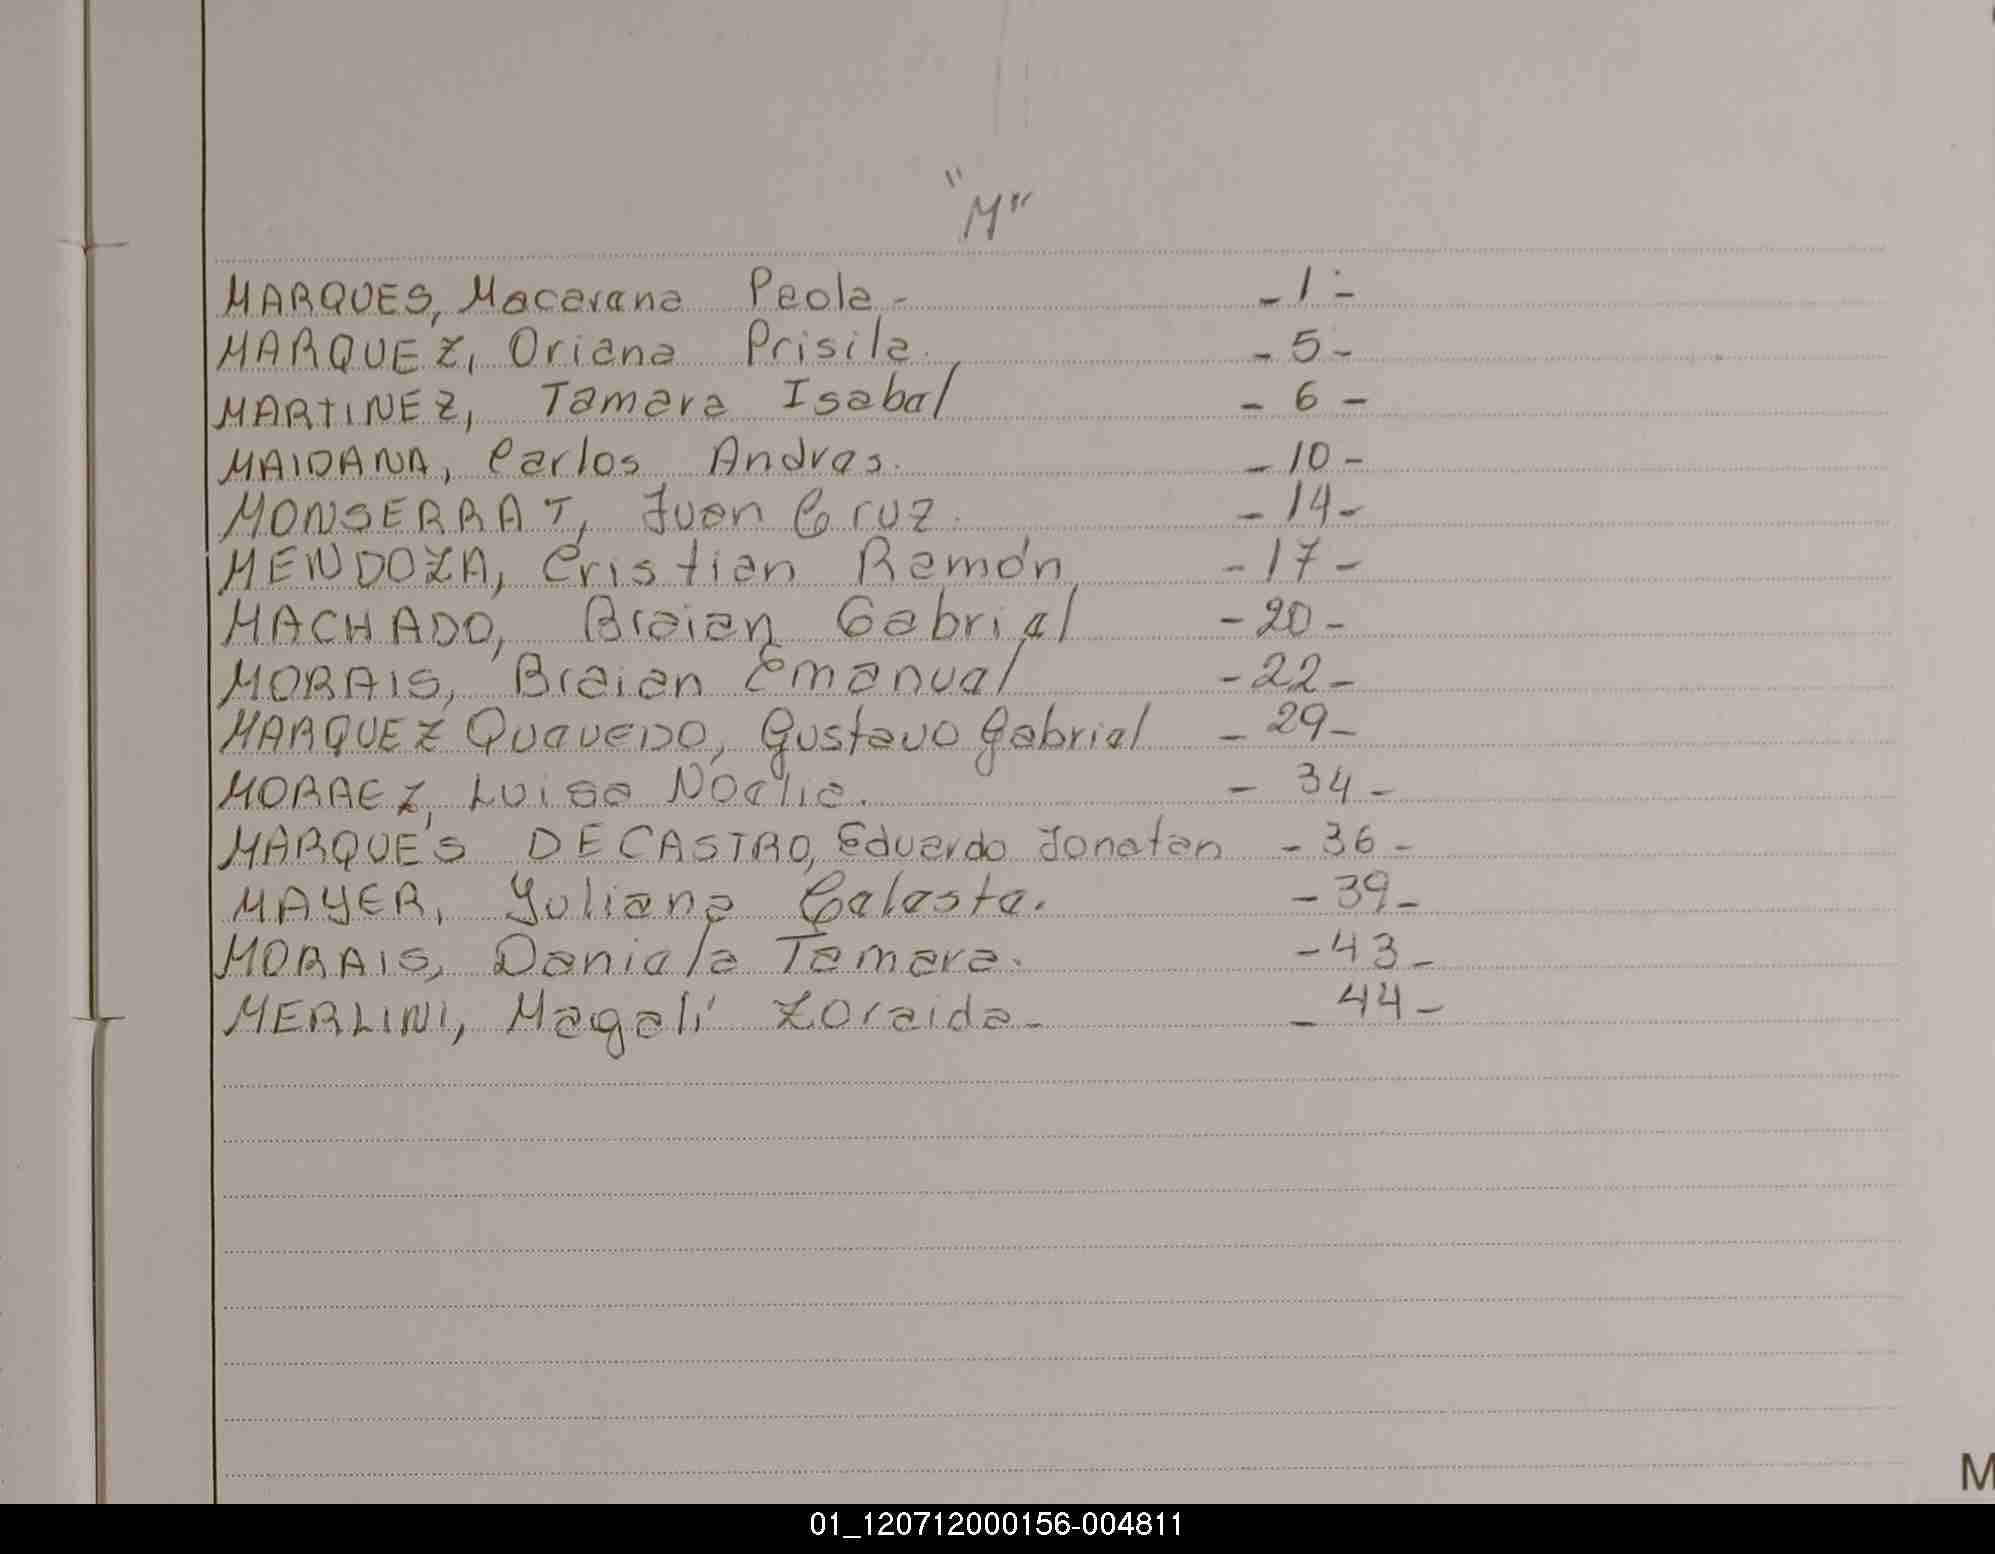 "M"
MARQUES, Macarena Paola - - 1 -
MARQUEZ, Oriana Prisila. - 5 -
MARTINEZ, Tamara Isabel - 6 -
MAIDANA, Carlos Andres. - 10 -
MONSERRAT, Juan Cruz. - 14 -
MENDOZA, Cristian Ramón - 17 -
MACHADO, Braian Gabriel - 20 -
MORAIS, Braian Emanuel - 22 -
MARQUEZ QUEVEDO, Gustavo Gabriel - 29 -
MORAEZ, Luisa Noelia. - 34 -
MARQUÉS DE CASTRO, Eduardo Jonatan - 36 -
MAYER, Yuliana Celeste. - 39 -
MORAIS, Daniela Tamara. - 43 -
MERLINI, Magalí Zoraida - - 44 -
M
01_120712000156-004811